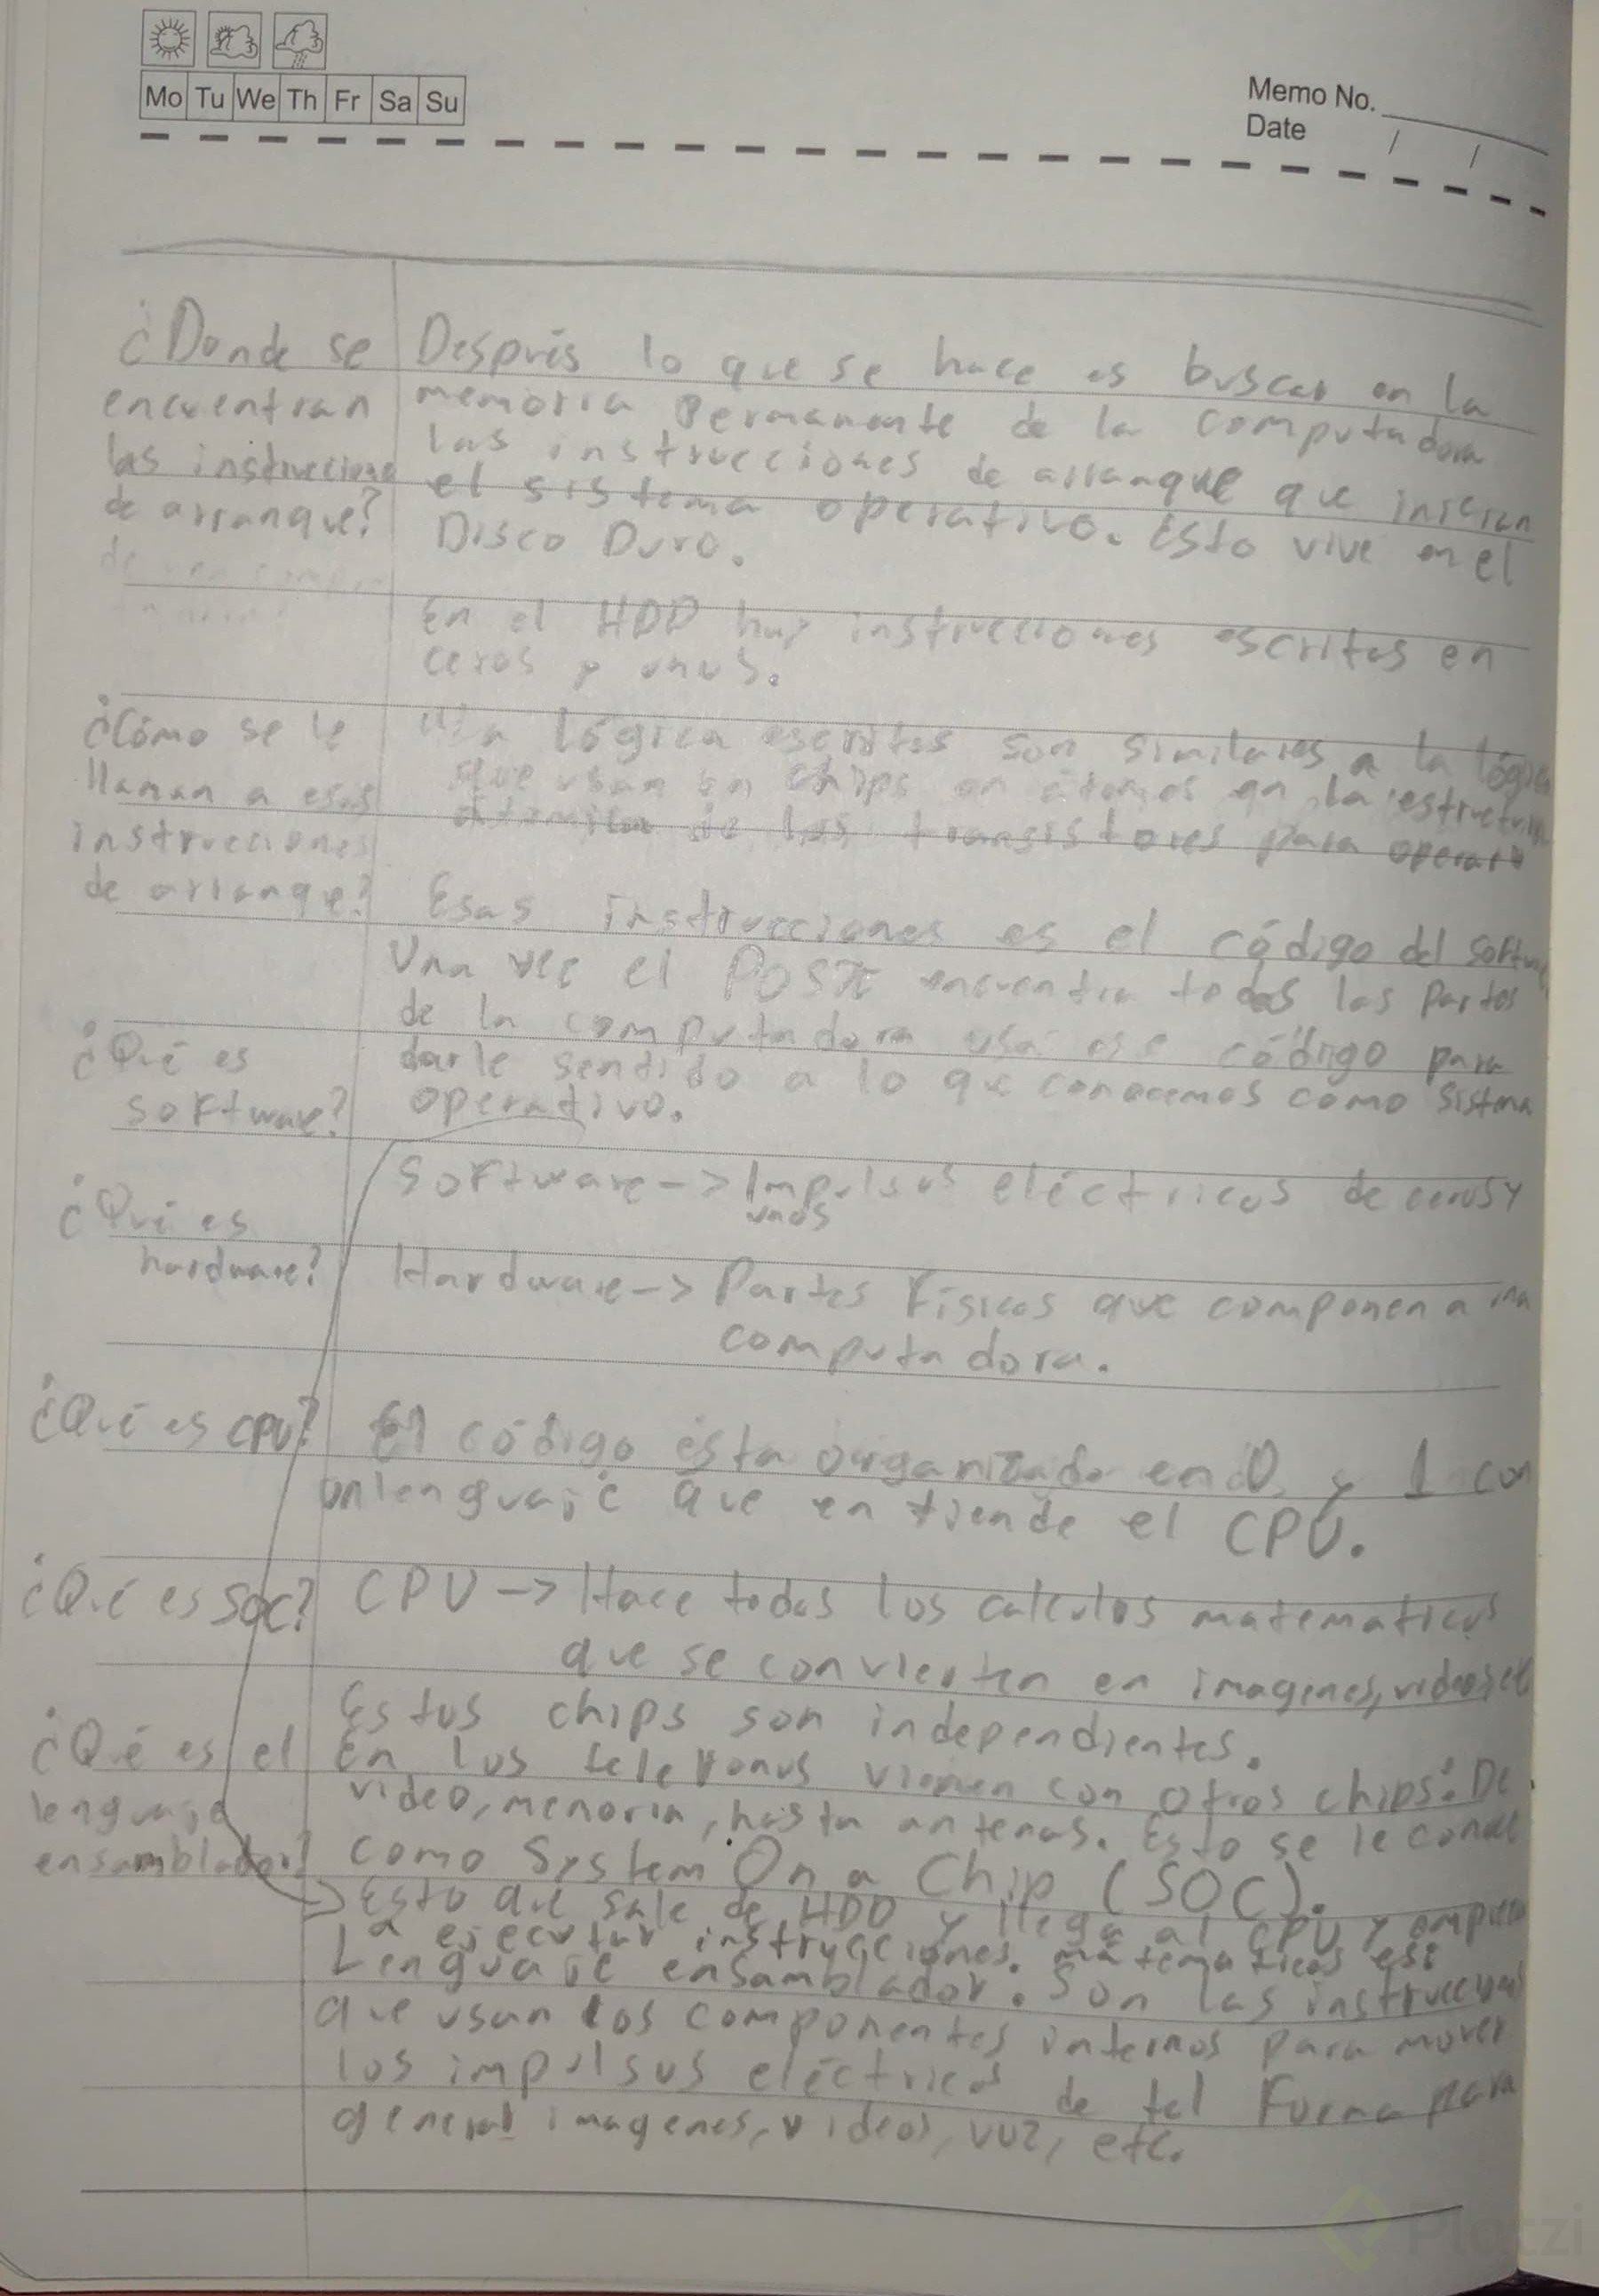 Mo Tu We Th Fr Sa Su
Memo No.
Date / /
¿Donde se
encuentran
las instruccione
de arranque?
Después lo que se hace es buscar en la
memoria permanente de la computadora
las instrucciones de arranque que inician
el sistema operativo. Esto vive en el
Disco Duro.
En el HDD hay instrucciones escritas en
ceros y unos.
¿Cómo se le
llaman a esas
instrucciones
de arranque?
lógica escritas son similares a la lógica
que usan en chips en átomos en la estructura
de los transistores para operar
Esas instrucciones es el código del software
Una vez el POST encuentra todas las partes
de la computadora usa ese código para
darle sentido a lo que conocemos como sistema
operativo.
¿Qué es
software?
Software -> Impulsos eléctricos de ceros y
unos
¿Qué es
hardware?
Hardware -> Partes Físicas que componen a una
computadora.
¿Qué es CPU?
El código ésta organizado en 0 y 1 con
un lenguaje que entiende el CPU.
¿Qué es SOC?
CPU -> Hace todos los calculos matematicos
que se convierten en imagenes, videos, etc
Estos chips son independientes.
En los telefonos vienen con otros chips: De
video, memoria, hasta antenas. Esto se le conoce
como System On a Chip (SOC).
¿Qué es el
lenguaje
ensamblador?
-> Esto que sale de HDD y llega al CPU y empieza
a ejecutar instrucciones matematicas es:
Lenguaje ensamblador. Son las instrucciones
que usan los componentes internos para mover
los impulsos eléctricos de tal Forma para
generar imagenes, videos, voz, etc.
Platzi